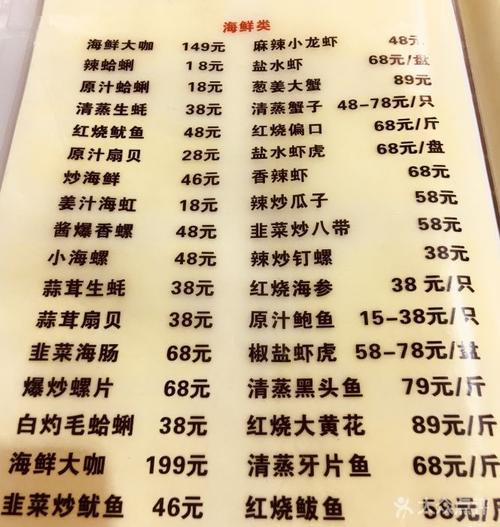 海鲜类
海鲜大咖 149元 麻辣小龙虾 48元
辣蛤蜊 18元 盐水虾 68元/盘
原汁蛤蜊 18元 葱姜大蟹 89元
清蒸生蚝 38元 清蒸蟹子 48-78元/只
红烧鱿鱼 48元 红烧偏口 68元/斤
原汁扇贝 28元 盐水虾虎 68元/盘
炒海鲜 46元 香辣虾 68元
姜汁海虹 18元 辣炒瓜子 58元
酱爆香螺 48元 韭菜炒八带 58元
小海螺 48元 辣炒钉螺 38元
蒜茸生蚝 38元 红烧海参 38元/只
蒜茸扇贝 38元 原汁鲍鱼 15-38元/只
韭菜海肠 68元 椒盐虾虎 58-78元/盘
爆炒螺片 68元 清蒸黑头鱼 79元/斤
白灼毛蛤蜊 38元 红烧大黄花 89元/斤
海鲜大咖 199元 清蒸牙片鱼 68元/斤
韭菜炒鱿鱼 46元 红烧鲅鱼 68元/斤